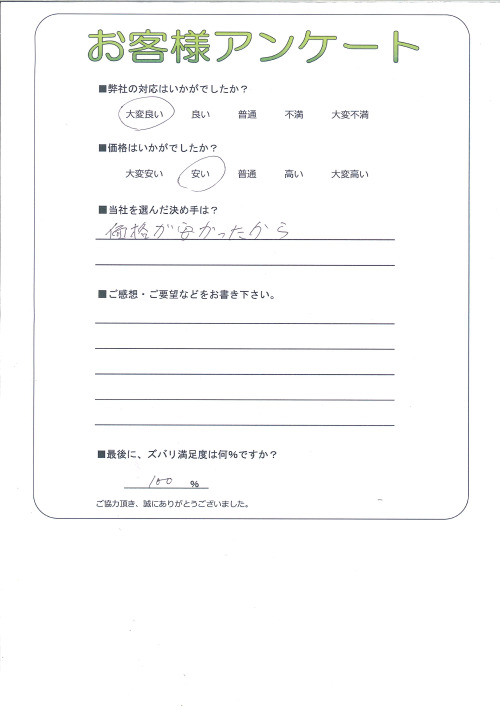 お客様アンケート
■弊社の対応はいかがでしたか？
大変良い 良い 普通 不満 大変不満
■価格はいかがでしたか？
大変安い 安い 普通 高い 大変高い
■当社を選んだ決め手は？
価格が安かったから
■ご感想・ご要望などをお書き下さい。
■最後に、ズバリ満足度は何%ですか？
100 %
ご協力頂き、誠にありがとうございました。